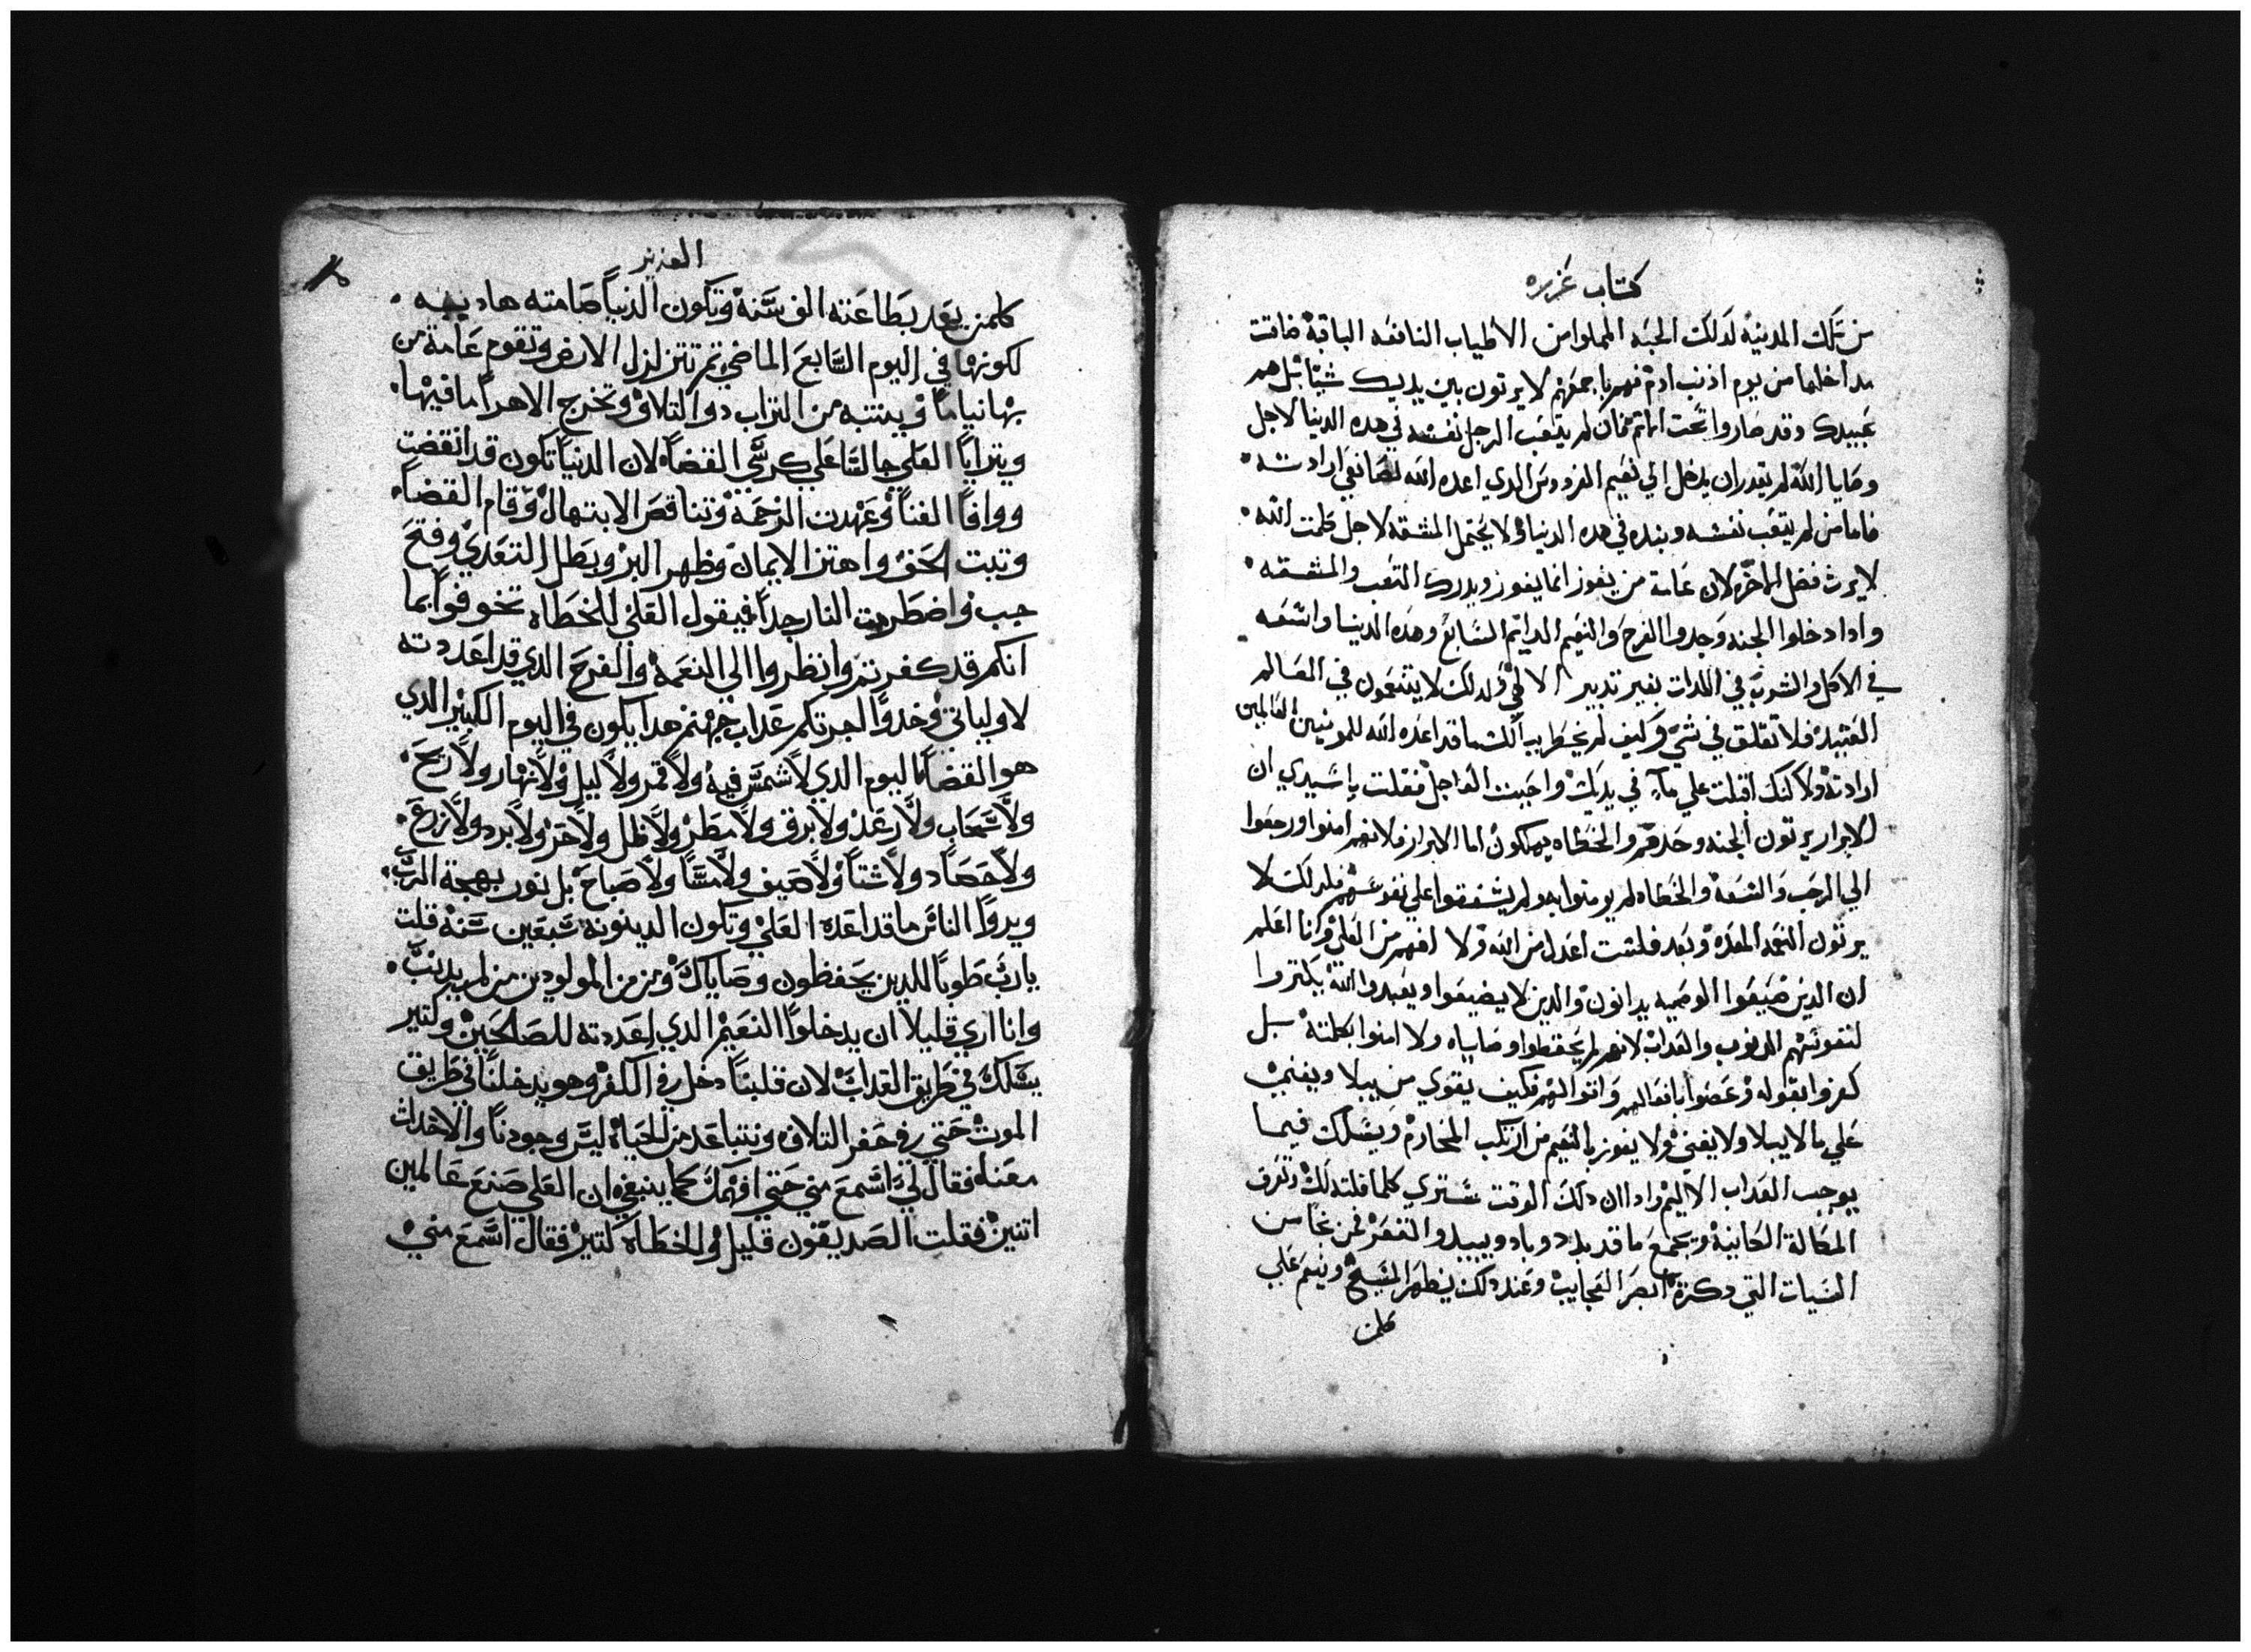 كتاب عزره
من تلك المدينه لدلك الجبه المملوا من الاطياب النافعه الباقية ضاقت
مداخلها من يوم اذنب ادم فهم باجمعهم لا يرتون بين يديك شيا بل هم
عبيدك وقد صاروا تحت الماتم فان لم يتعب الرجل نفسه في هده الدنيا لاجل
وصايا الله لم يقدر ان يدخل الي نعيم الفردوس الدي اعده الله لصانعي ارادته
فاما من لم يتعب نفسه وبنده في هده الدنيا ولا يحتمل المشقه لاجل كلمت الله
لا يرث فضل الاخره لان عامة من يفوز انما يفوز ويدرك التعب والمشقه
وادا دخلوا الجنه وجدوا الفرح والنعيم الدايم السابع وهده الدنيا واسعه
في الاكل والشرب في اللدات بغير تدبير الالهي ولدلك لا يتنعمون في العالم
العتيد فلا تقلق في شي وكيف لم يخطر ببالك ما قد اعده الله للمومنين العالمين
ارادته ولاكنك اقبلت علي ما في يديك واجبت العاجل فقلت يا سيدي ان
الابرار يرتون الجنه وحدهم والخطاه يهلكون اما الابرار فلانهم امنوا ورجعوا
الي الرحب والسعة والخطاه لم يومنوا به ولم يشفقوا علي نفوسهم فلدلك لا
يرتون النعمه المعده وبعد فلست اعدل من الله ولا افهم من العلي وانا اعلم
ان الدين ضيعوا الوصيه يدانون والدين لا يضيعوا ويعبدوا الله يكتروا
لنفوسهم الدنوب والعداب لانهم لم يحفظوا وصاياه ولا امنوا بكلمته بل
كفروا بقوله وعصوا بافعالهم واتوا الهم فكيف يقوي من يبلا ويفني
علي ما لا يبلا ولا يفني ولا يفوز بالنعيم من ارتكب المحارم ويسلك فيما
يوجب العداب الاليم وادا ان دلك الوقت ستري كلما قلته لك وتعرف
المكالة الكابية ويجمع ما قد بدد وباد ويبيد والتفقر فمن نجا من
السيات التي دكرة ابصر العجايب وعند دلك يظهر المسيح وينعم علي
كلمن
العزير
كلمن يعد بطاعته الف سنة وتكون الدنيا صامته هاديه
لكونها في اليوم السابع الماضي تم تتزلزل الارض وتقوم عامة من
بها نياما وينتبه من التراب دوا التلاف وتخرج الاهرا ما فيها
ويترايا العلي جالسا علي كرسي القضاه لان الدنيا تكون قد انقضت
ووافا الفنا وعهدت الرحمة وتناقص الابتهال وقام القضا
وتبت الحق واهتز الايمان وظهر البر وبطل التعدي وفتح
جب واضطربت النار جدا فيقول العلي للخطاه تخوفوا بما
انكم قد كفرتم وانظروا الي النعمه والفرح الدي قد اعددته
لاوليائي وخدوا اجرتكم عداب جهنم هدا يكون في اليوم الكبير الدي
هو القضا اليوم الدي لا شمس فيه ولا قمر ولا ليل ولا نهار ولا ريح
ولا سحاب ولا رعد ولا برق ولا مطر ولا ظل ولا حر ولا برد ولا زرع
ولا حصاد ولا شتا ولا صيف ولا مسا ولا صباح بل نور بهجة الرب
ويروا الناس ما قد اعده العلي وتكون الدينونه سبعين سنة قلت
يا رب طوبا للدين يحفظون وصاياك ومن من المولودين من لم يدنب
وانا اري قليلا ان يدخلوا النعيم الدي اعددته للصالحين وكتير
يسلك في طريق العداب لان قلبنا دخل في الكفر وهو يدخلنا في طريق
الموت حتي في حفر التلاف ونتباعد من الحياه ليس وجودنا والاحدات
معنا فقال لي اسمع مني حتي افهمك كما ينبغي ان العلي صنع عالمين
اتنين فقلت الصديقون قليل والخطاه كتير فقال اسمع مني